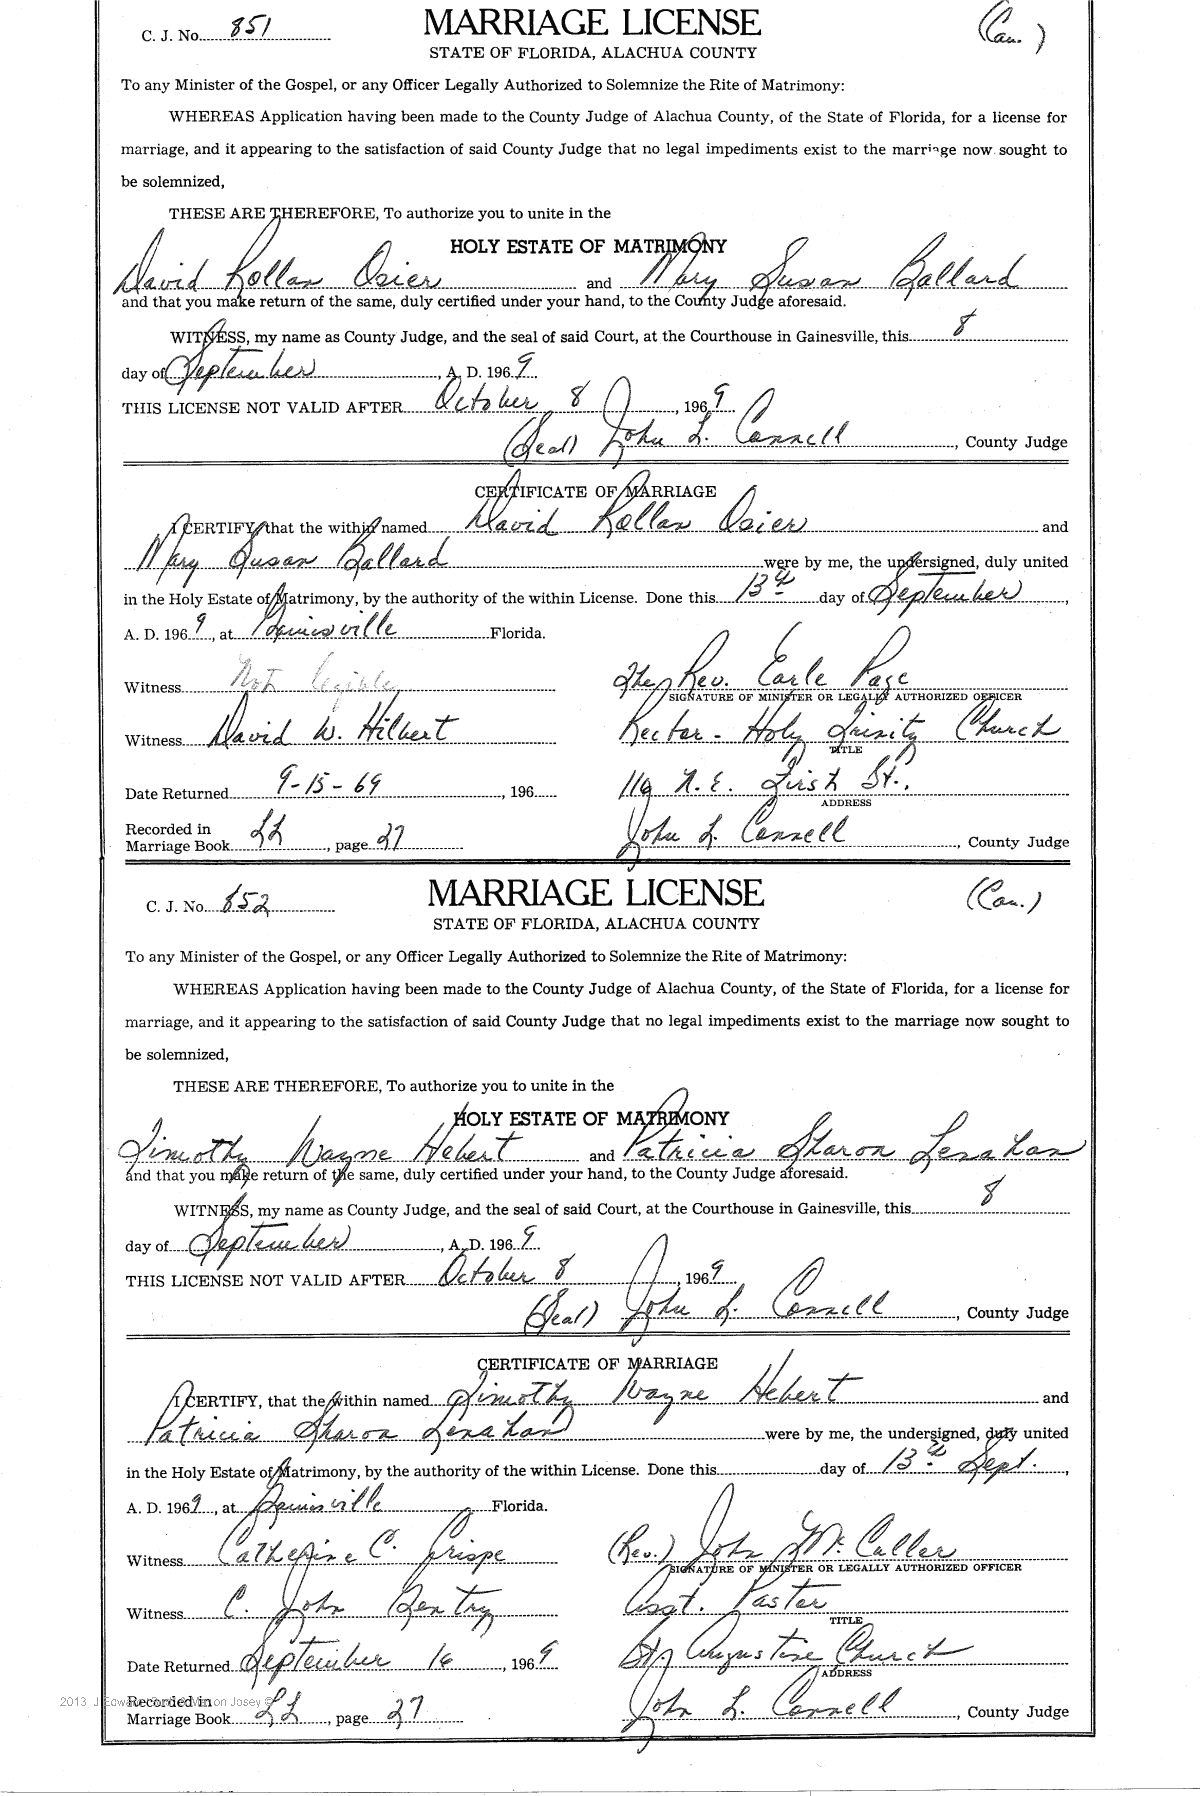 C. J. No. 851 MARRIAGE LICENSE (Can.)
STATE OF FLORIDA, ALACHUA COUNTY
To any Minister of the Gospel, or any Officer Legally Authorized to Solemnize the Rite of Matrimony:
WHEREAS Application having been made to the County Judge of Alachua County, of the State of Florida, for a license for
marriage, and it appearing to the satisfaction of said County Judge that no legal impediments exist to the marriage now sought to
be solemnized,
THESE ARE THEREFORE, To authorize you to unite in the
HOLY ESTATE OF MATRIMONY
David Rollan Osier and Mary Susan Ballard
and that you make return of the same, duly certified under your hand, to the County Judge aforesaid.
WITNESS, my name as County Judge, and the seal of said Court, at the Courthouse in Gainesville, this 8
day of September, A. D. 1969
THIS LICENSE NOT VALID AFTER October 8, 1969
(Seal) John L. Connell, County Judge
CERTIFICATE OF MARRIAGE
I CERTIFY, that the within named David Rollan Osier and
Mary Susan Ballard were by me, the undersigned, duly united
in the Holy Estate of Matrimony, by the authority of the within License. Done this 13th day of September,
A. D. 1969, at Gainesville Florida.
Witness Not legible The Rev. Earle Page
SIGNATURE OF MINISTER OR LEGALLY AUTHORIZED OFFICER
Witness David W. Hilbert Rector - Holy Trinity Church
TITLE
Date Returned 9-15-69, 196 116 N.E. First St.,
ADDRESS
Recorded in
Marriage Book LL, page 27 John L. Connell, County Judge
C. J. No. 852 MARRIAGE LICENSE (Can.)
STATE OF FLORIDA, ALACHUA COUNTY
To any Minister of the Gospel, or any Officer Legally Authorized to Solemnize the Rite of Matrimony:
WHEREAS Application having been made to the County Judge of Alachua County, of the State of Florida, for a license for
marriage, and it appearing to the satisfaction of said County Judge that no legal impediments exist to the marriage now sought to
be solemnized,
THESE ARE THEREFORE, To authorize you to unite in the
HOLY ESTATE OF MATRIMONY
Timothy Wayne Hebert and Patricia Sharon Lenahan
and that you make return of the same, duly certified under your hand, to the County Judge aforesaid.
WITNESS, my name as County Judge, and the seal of said Court, at the Courthouse in Gainesville, this 8
day of September, A. D. 1969
THIS LICENSE NOT VALID AFTER October 8, 1969
(Seal) John L. Connell, County Judge
CERTIFICATE OF MARRIAGE
I CERTIFY, that the within named Timothy Wayne Hebert and
Patricia Sharon Lenahan were by me, the undersigned, duly united
in the Holy Estate of Matrimony, by the authority of the within License. Done this day of 13th Sept.,
A. D. 1969, at Gainesville Florida.
Witness Catherine C. Crispe (Rev.) John McCuller
SIGNATURE OF MINISTER OR LEGALLY AUTHORIZED OFFICER
Witness C. John Gentry Asst. Pastor
TITLE
Date Returned September 16, 1969 St. Augustine Church
ADDRESS
Recorded in
Marriage Book LL, page 27 John L. Connell, County Judge
2013 J Edward on Josey ©